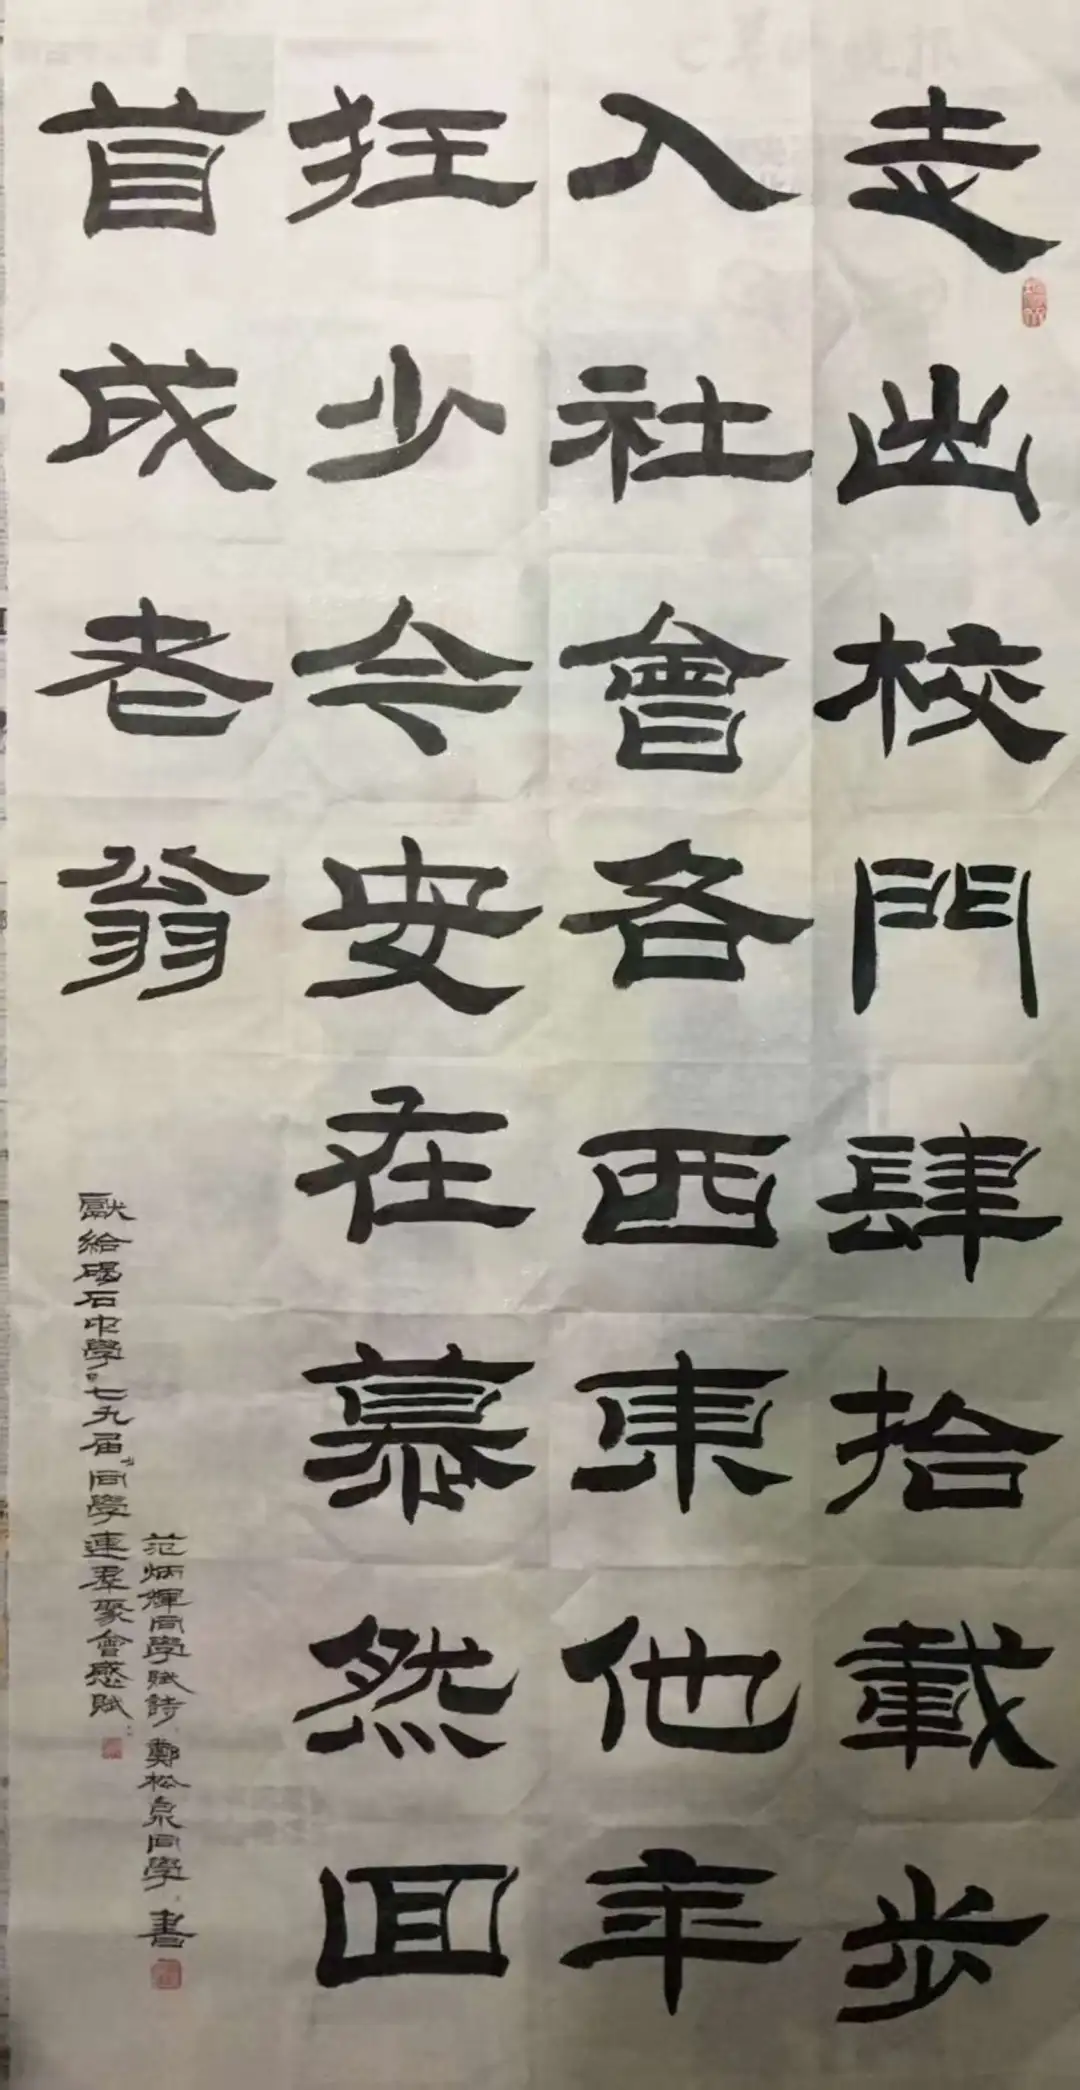 走出校門肆拾載步
入社會各西東他年
狂少今安在慕然回
首成老翁
范炳輝同學賦詩鄭松泉同學書
獻給碣石中學"七九届"同學連羣聚會感賦